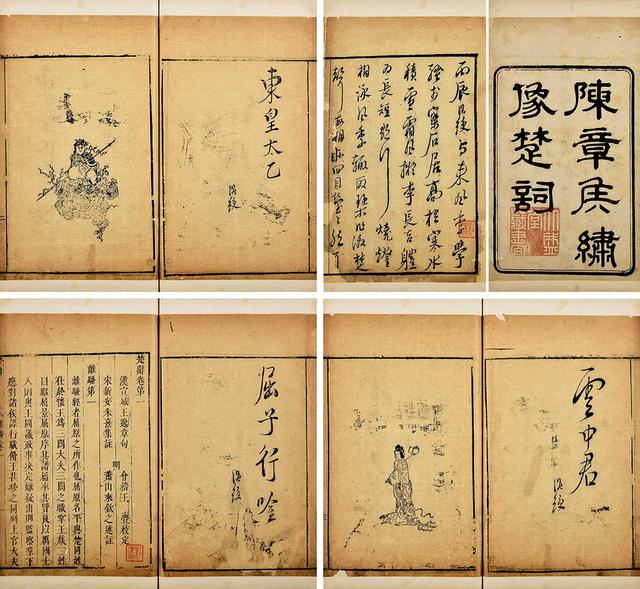 東皇太乙
洪綬
丙辰洪綬與來風季學
騷於搴石居高梧寒水
積雪霜風擬李長吉體
為長短歌行燒燈
相詠風季輒取琴作激楚
聲每相視四目瑩瑩然下
陳章矦繡
像楚詞
楚辭卷第一
漢宣城王逸章句
宋新安朱熹集註
明
蕭山來欽之述註
離騷第一
離騷經者屈原之所作也屈原名平與楚同姓
仕於懷王為三閭大夫三閭之職掌王族三姓
曰昭屈景屈原序其譜屬率其賢良以厲國士
入則與王圖議政事決定嫌疑出則監察羣下
應對諸侯謀行職脩王甚珍之同列上官大夫
屈子行吟
洪綬
雲中君
洪綬